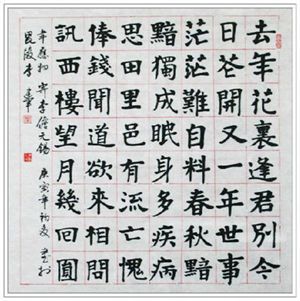 去年花裏逢君別今
日花開又一年世事
茫茫難自料春愁黯
黯獨成眠身多疾病
思田里邑有流亡愧
俸錢聞道欲來相問
訊西樓望月幾回圓
韋應物 寄李儋元錫 庚寅年初夏